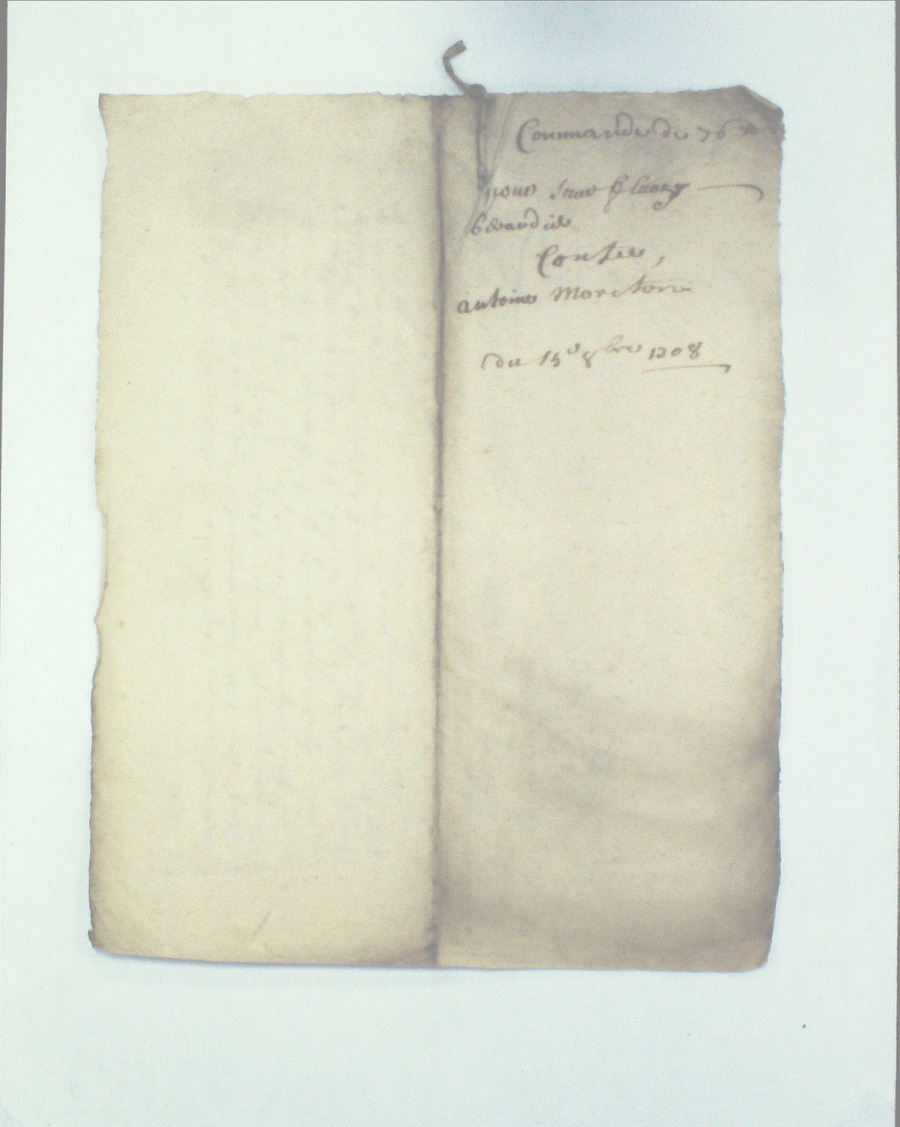 Commande de 76 tt
pour Jean fleury
berardier
Contre,
antoine Moreton
du 15e 8bre 1708